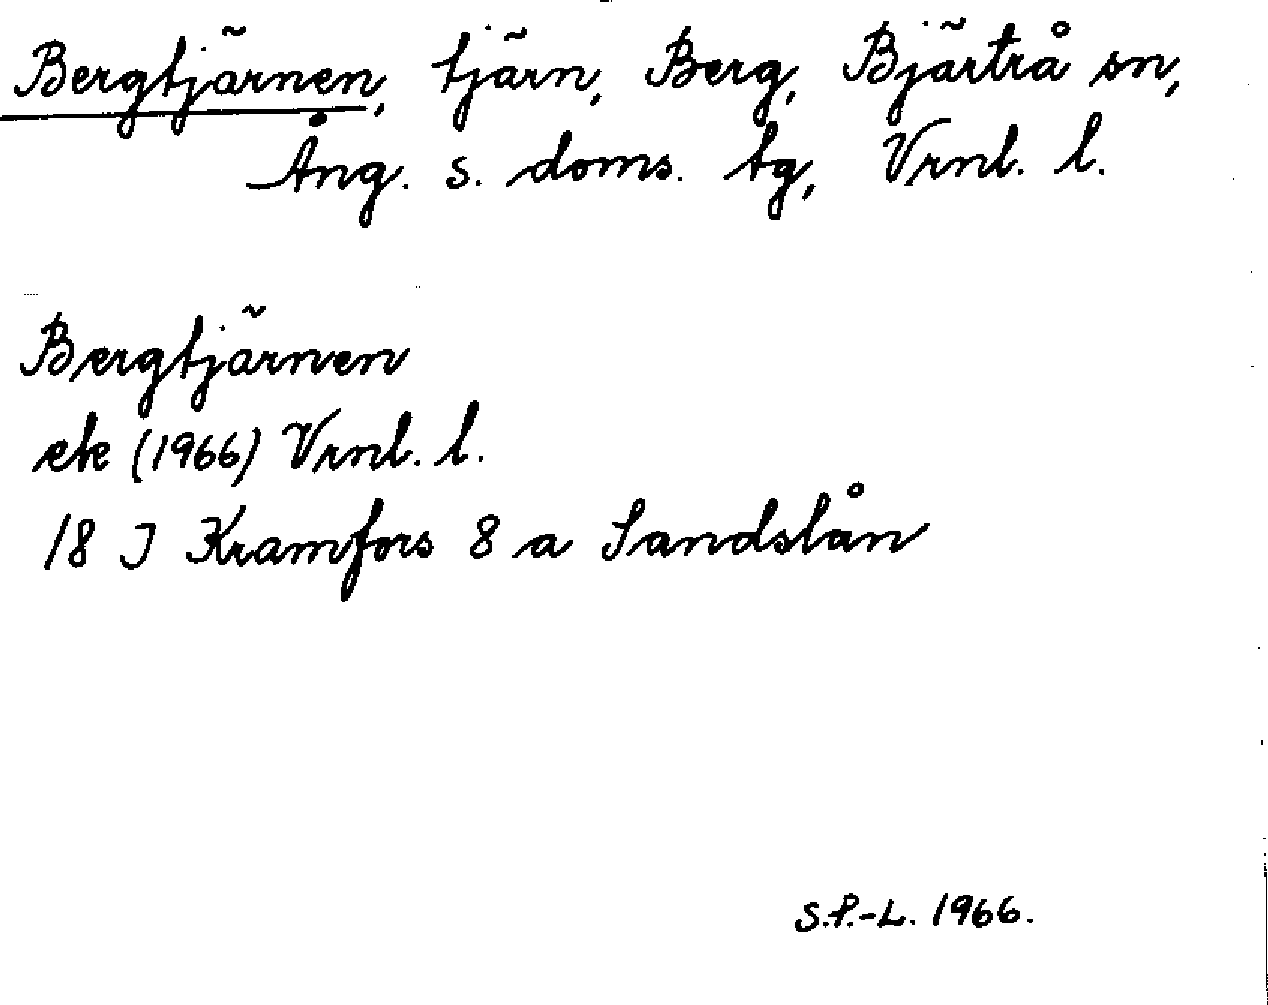 Bergtjärnen, tjärn, Berg, Bjärtrå sn,
Ång. s. doms. tg, Vrnl. l.
Bergtjärnen
ek (1966) Vrnl. l.
18 J Kramfors 8 a Sandslån
S.P.-L. 1966.